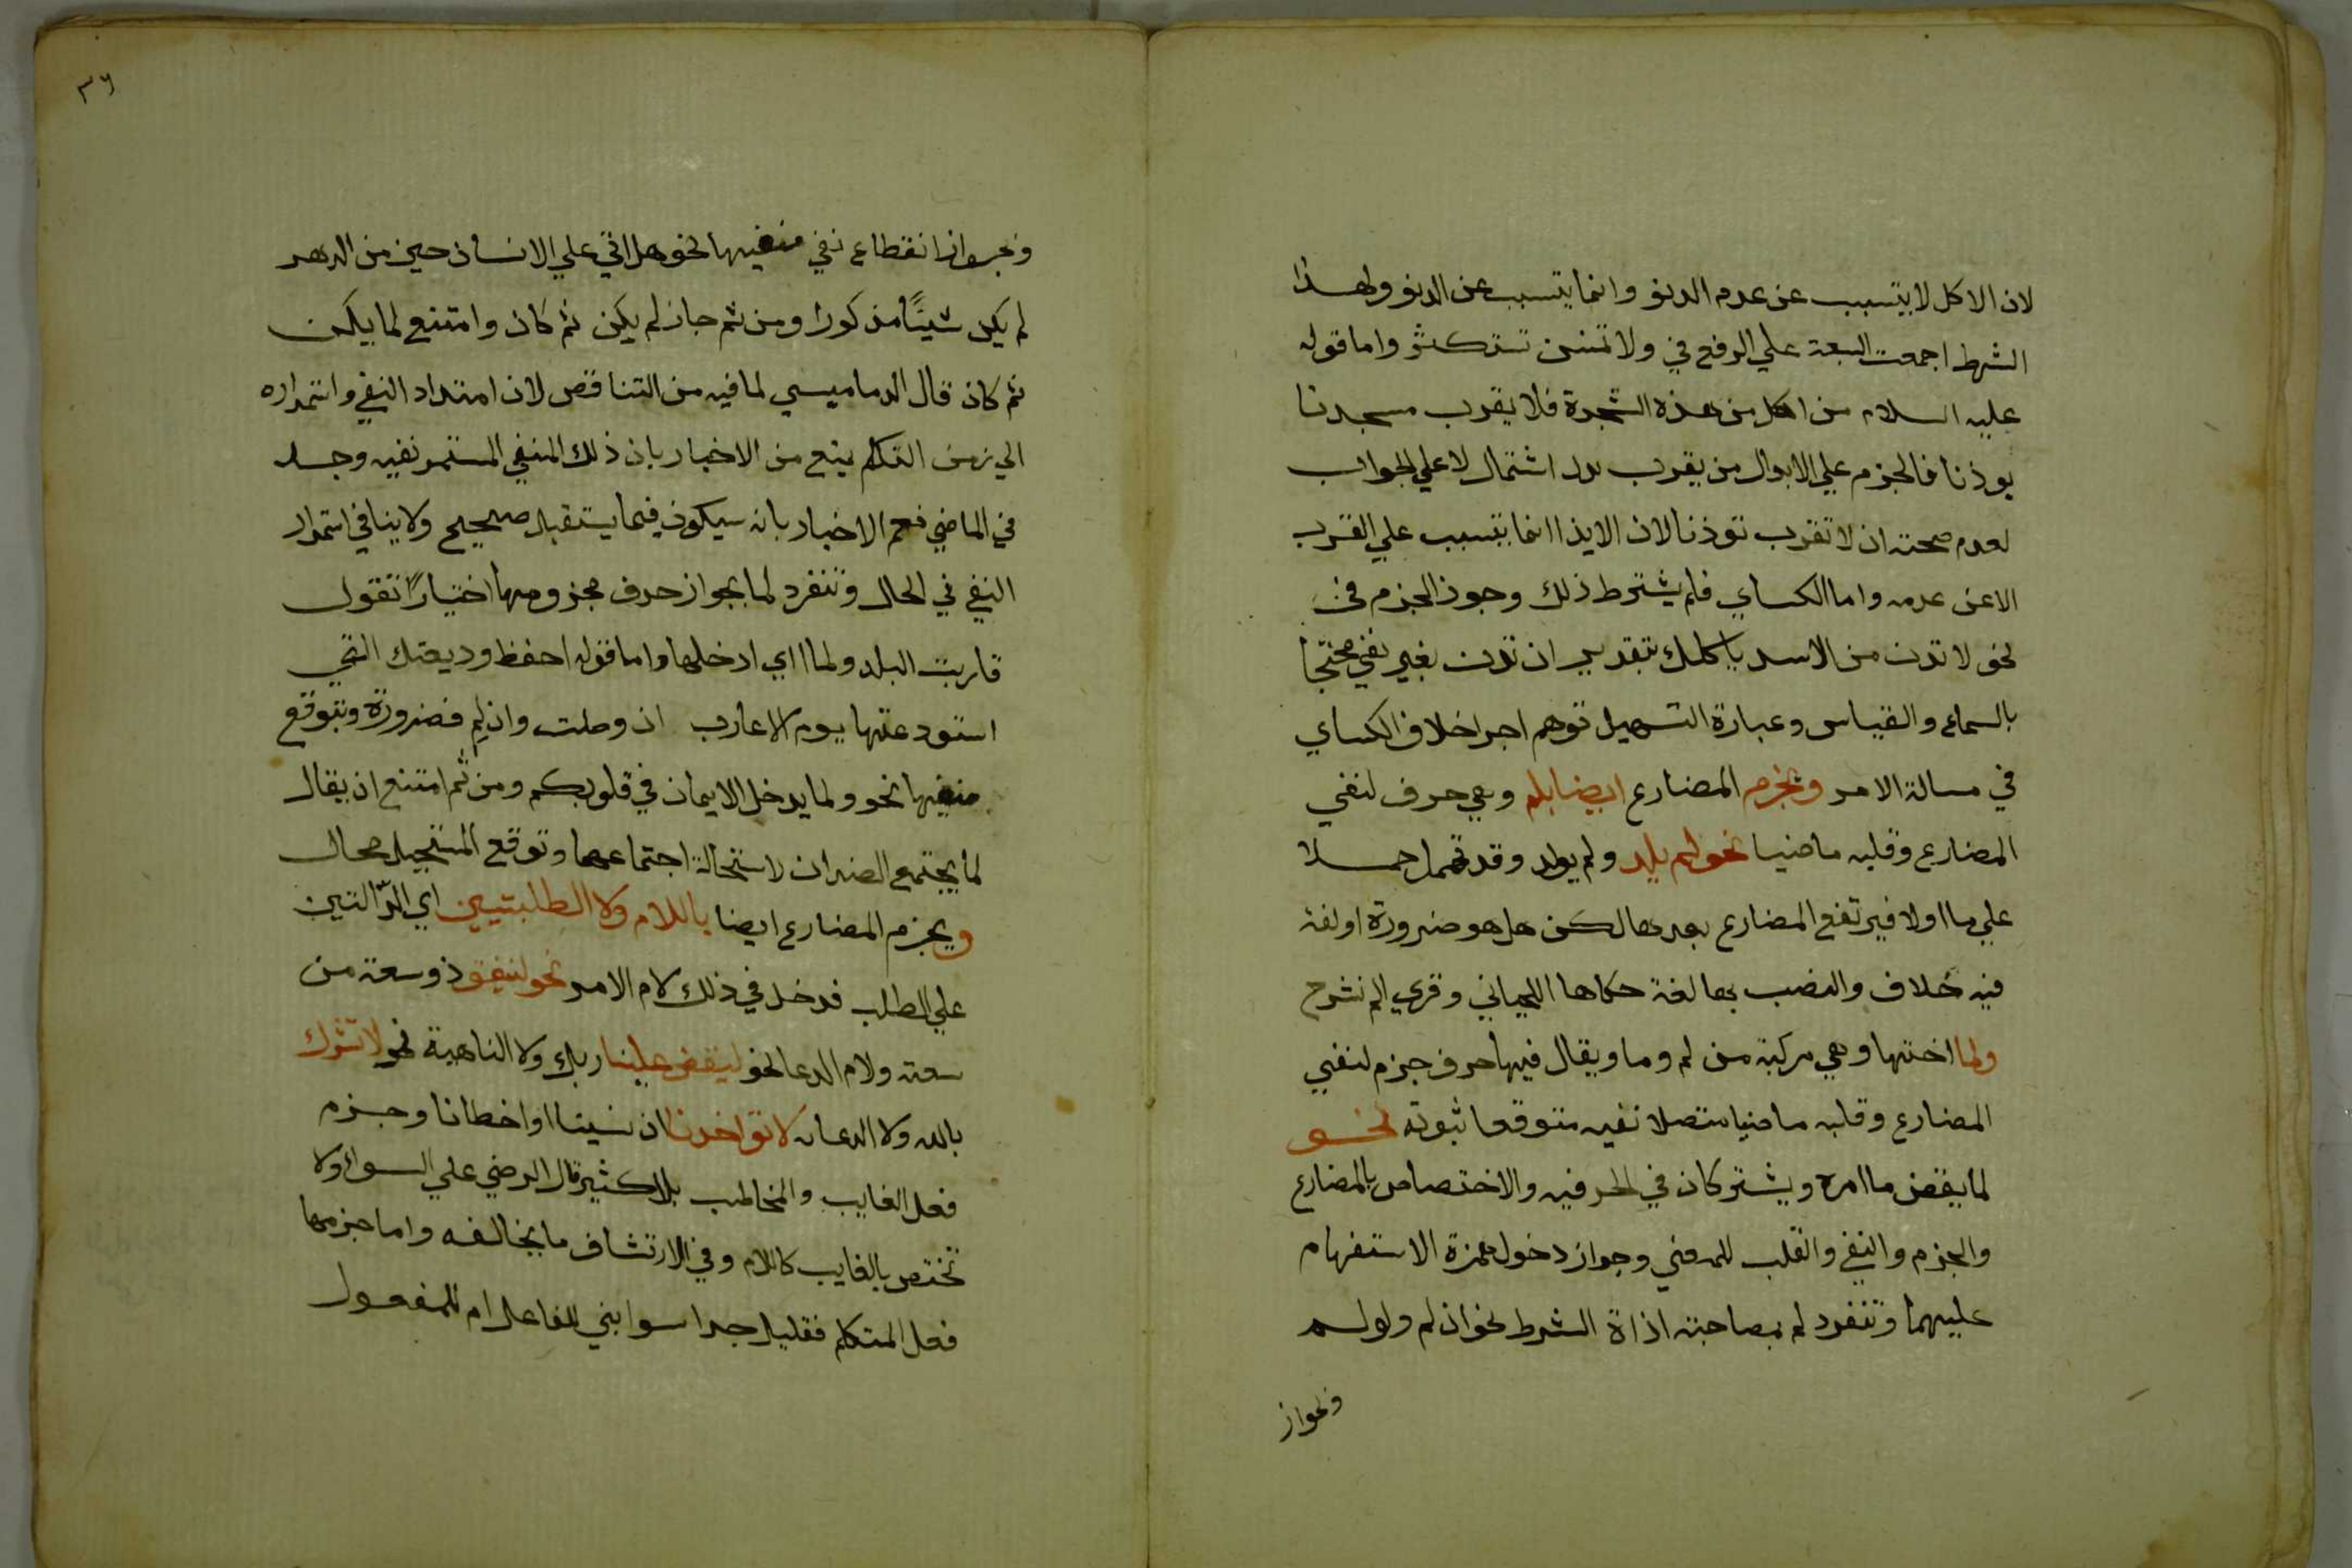 لان الاكل لا يتسبب عن عدم الدنو وانما يتسبب عن الدنو ولهذا
الشرط اجمعت السبعة علي الرفع في ولا تمنن تستكثر واما قوله
عليه السلام من اكل من هذه الشجرة فلا يقرب مسجدنا
يوذنا فالجزم علي الابدال من يقرب بدل اشتمال لا علي الجواب
لعدم صحته ان لا تقرب توذنا لان الايذا انما يتسبب علي القرب
لا عن عدمه واما الكساي فلم يشترط ذلك وجوز الجزم في
نحو لا تدن من الاسد ياكلك بتقدير ان تدن بغير نفي محتجا
بالسماع والقياس وعبارة التسهيل توهم اجرا خلاف الكساي
في مسالة الامر ويجزم المضارع ايضا بلم وهي حرف لنفي
المضارع وقلبه ماضيا نحو لم يلد ولم يولد وقد تهمل حملا
علي ما او لا فيرتفع المضارع بعدها لكن هل هو ضرورة او لغة
فيه خلاف والنصب بها لغة حكاها اللحياني وقري الم نشرح
ولما اختها وهي مركبة من لم وما ويقال فيها حرف جزم لنفي
المضارع وقلبه ماضيا متصلا نفيه متوقعا ثبوته نحو
لما يقض ما امره ويشتركان في الحرفيه والاختصاص بالمضارع
والجزم والنفي والقلب للمضي وجواز دخول همزة الاستفهام
عليهما وتنفرد لم بمصاحبته اداة الشرط نحو ان لم ولو لم
وبجواز
٣٦
وبجواز انقطاع نفي منفيها نحو هل اتي علي الانسان حين من الدهر
لم يكن شيئًا مذكورا ومن ثم جاز لم يكن ثم كان وامتنع لما يكن
ثم كان قال الدماميسي لما فيه من التناقص لان امتداد النفي واستمراره
الي زمن التكلم يمنع من الاخبار بان ذلك المنفي المستمر نفيه وجد
في الماضي نعم الاخبار بانه سيكون فيما يستقبل صحيح ولا ينافي استمرار
النفي في الحال وتنفرد لما بجواز حدف مجزومها اختيارًا تقول
قاربت البلد ولما اي ادخلها واما قوله احفظ وديعتك التي
استودعتها يوم الاعارب ان وصلت وان لم فضرورة وبتوقع
منفيها نحو ولما يدخل الايمان في قلوبكم ومن ثم امتنع ان يقال
لما يجتمع الضدان لاستحالة اجتماعهما وتوقع المستحيل محال
ويجزم المضارع ايضا باللام ولا الطلبتيين اي الدّالتين
علي الطلب فدخل في ذلك لام الامر نحو لينفق ذو سعة من
سعته ولام الدعا نحو ليقض علينا ربك ولا الناهية نحو لا تشرك
بالله ولا الدعايه لا تواخدنا ان نسينا او اخطانا وجزم
فعل الغايب والمخاطب بلا كثير قال الرضي علي السواء ولا
تختص بالغايب كاللام وفي الارتشاف ما يخالفه واما جزمها
فعل المتكلم فقليل جدا سوا بني للفاعل ام للمفعول